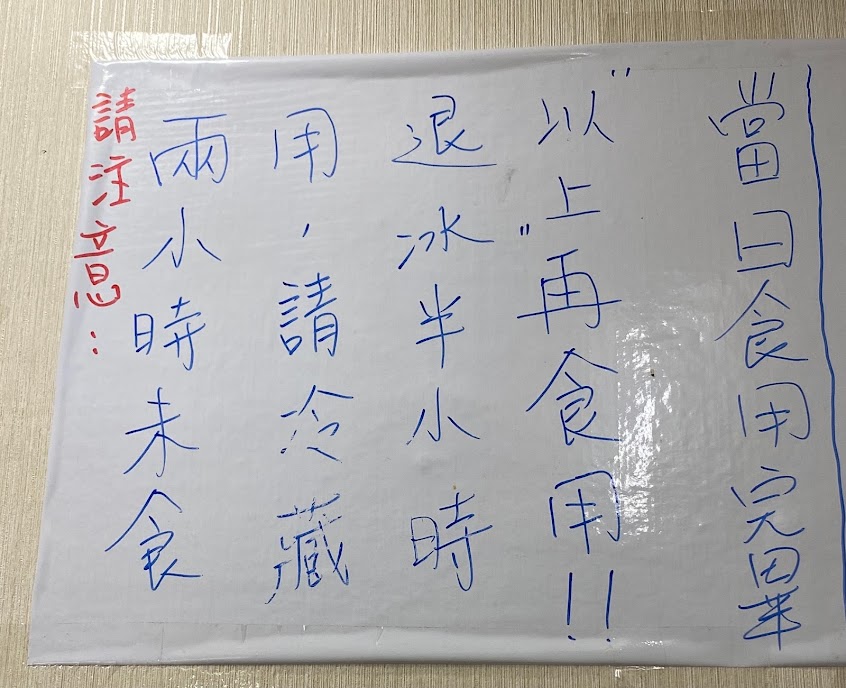 請注意：
兩小時未食
用，請冷藏
退冰半小時
"以上"再食用!!
當日食用完畢